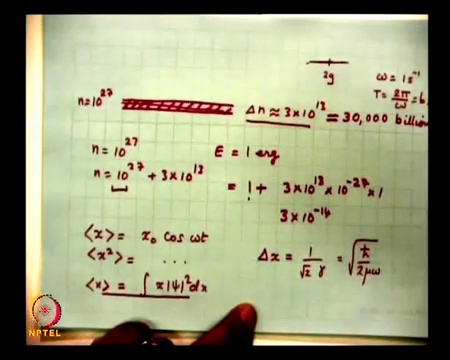 2g
ω = 1 s⁻¹
T = 2π/ω =
n=10²⁷ Δn ≈ 3×10¹³ = 30,000 billion
n = 10²⁷ E = 1 erg
n = 10²⁷ + 3×10¹³ = 1 + 3×10¹³×10⁻²⁷×1
3×10⁻¹⁴
⟨x⟩ = x₀ cos ωt
⟨x²⟩ = ...
Δx = 1/(√2 γ) = √(ℏ/2μω)
⟨x⟩ = ∫ x|ψ|² dx
NPTEL